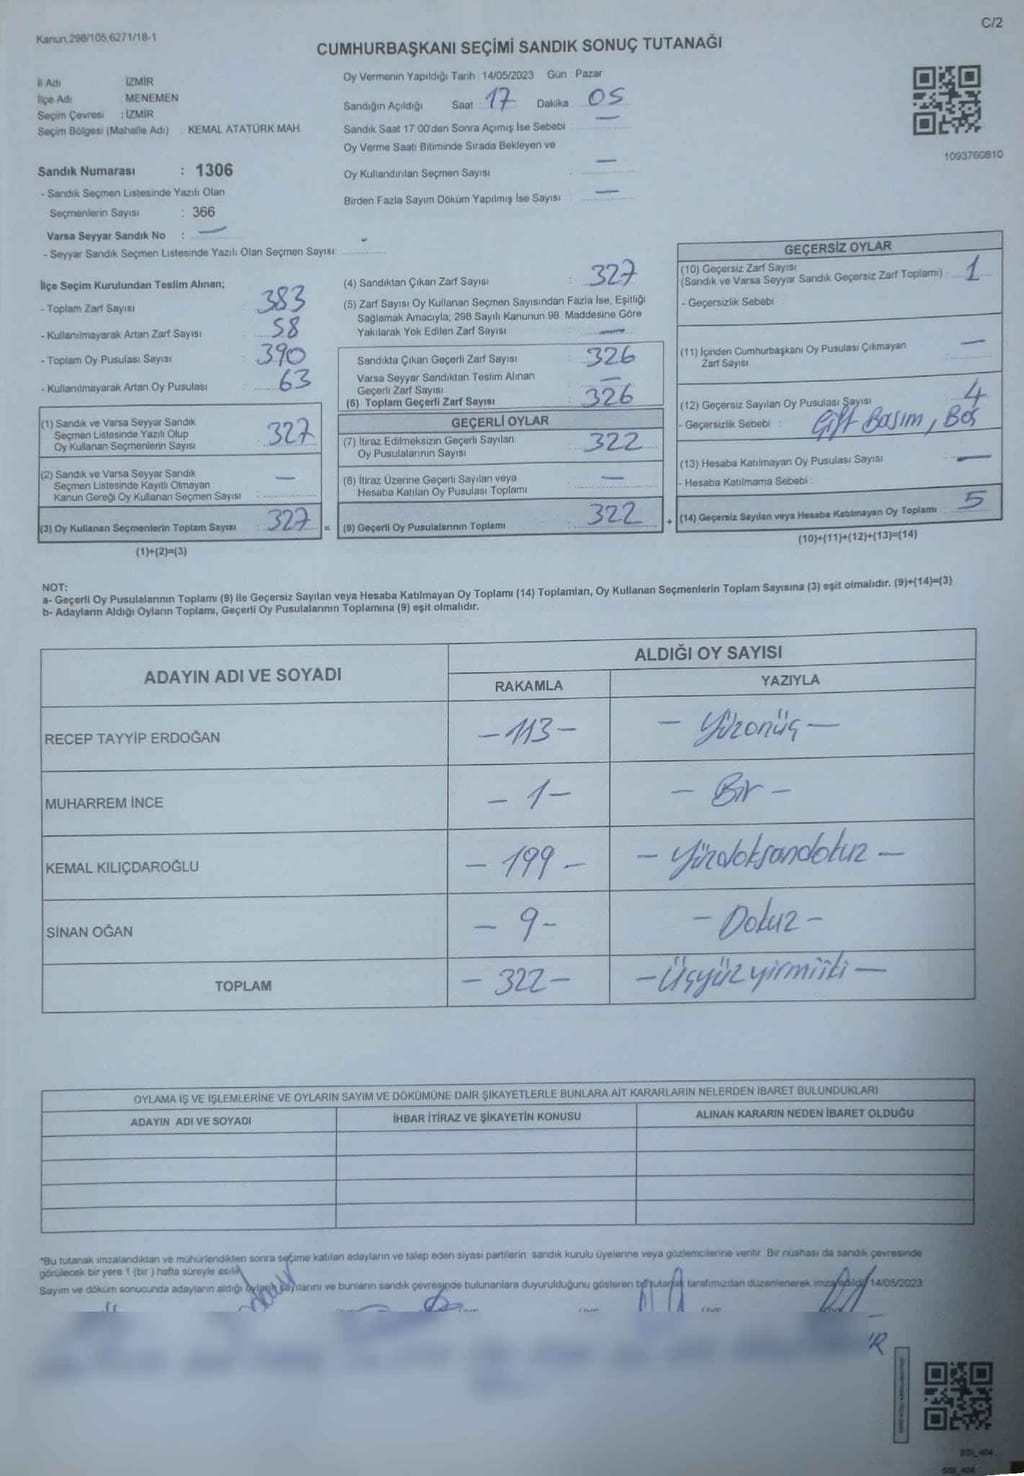 C/2
Kanun.298/105,6271/18-1
CUMHURBAŞKANI SEÇİMİ SANDIK SONUÇ TUTANAĞI
İl Adı : İZMİR
İlçe Adı : MENEMEN
Seçim Çevresi : İZMİR
Seçim Bölgesi (Mahalle Adı) : KEMAL ATATÜRK MAH
Sandık Numarası : 1306
- Sandık Seçmen Listesinde Yazılı Olan
Seçmenlerin Sayısı : 366
Varsa Seyyar Sandık No : —
- Seyyar Sandık Seçmen Listesinde Yazılı Olan Seçmen Sayısı:
Oy Vermenin Yapıldığı Tarih : 14/05/2023 Gün : Pazar
Sandığın Açıldığı Saat 17 Dakika 05
Sandık Saat 17:00'den Sonra Açımış İse Sebebi : —
Oy Verme Saati Bitiminde Sırada Bekleyen ve
Oy Kullandırılan Seçmen Sayısı : —
Birden Fazla Sayım Döküm Yapılmış İse Sayısı : —
1093760810
İlçe Seçim Kurulundan Teslim Alınan;
- Toplam Zarf Sayısı : 383
- Kullanılmayarak Artan Zarf Sayısı : 58
- Toplam Oy Pusulası Sayısı : 390
- Kullanılmayarak Artan Oy Pusulası : 63
(1) Sandık ve Varsa Seyyar Sandık
Seçmen Listesinde Yazılı Olup
Oy Kullanan Seçmenlerin Sayısı : 327
(2) Sandık ve Varsa Seyyar Sandık
Seçmen Listesinde Kayıtlı Olmayan
Kanun Gereği Oy Kullanan Seçmen Sayısı : —
(3) Oy Kullanan Seçmenlerin Toplam Sayısı : 327 =
(1)+(2)=(3)
(4) Sandıktan Çıkan Zarf Sayısı : 327
(5) Zarf Sayısı Oy Kullanan Seçmen Sayısından Fazla İse, Eşitliği
Sağlamak Amacıyla; 298 Sayılı Kanunun 98. Maddesine Göre
Yakılarak Yok Edilen Zarf Sayısı : —
Sandıkta Çıkan Geçerli Zarf Sayısı : 326
Varsa Seyyar Sandıktan Teslim Alınan
Geçerli Zarf Sayısı : —
(6) Toplam Geçerli Zarf Sayısı : 326
GEÇERLİ OYLAR
(7) İtiraz Edilmeksizin Geçerli Sayılan
Oy Pusulalarının Sayısı : 322
(8) İtiraz Üzerine Geçerli Sayılan veya
Hesaba Katılan Oy Pusulası Toplamı : —
(9) Geçerli Oy Pusulalarının Toplamı : 322 +
GEÇERSİZ OYLAR
(10) Geçersiz Zarf Sayısı
(Sandık ve Varsa Seyyar Sandık Geçersiz Zarf Toplamı) : 1
- Geçersizlik Sebebi
(11) İçinden Cumhurbaşkanı Oy Pusulası Çıkmayan
Zarf Sayısı : —
(12) Geçersiz Sayılan Oy Pusulası Sayısı : 4
- Geçersizlik Sebebi : Çift Basım, Boş
(13) Hesaba Katılmayan Oy Pusulası Sayısı : —
- Hesaba Katılmama Sebebi :
(14) Geçersiz Sayılan veya Hesaba Katılmayan Oy Toplamı : 5
(10)+(11)+(12)+(13)=(14)
NOT:
a- Geçerli Oy Pusulalarının Toplamı (9) ile Geçersiz Sayılan veya Hesaba Katılmayan Oy Toplamı (14) Toplamları, Oy Kullanan Seçmenlerin Toplam Sayısına (3) eşit olmalıdır. (9)+(14)=(3)
b- Adayların Aldığı Oyların Toplamı, Geçerli Oy Pusulalarının Toplamına (9) eşit olmalıdır.
ADAYIN ADI VE SOYADI
ALDIĞI OY SAYISI
RAKAMLA
YAZIYLA
RECEP TAYYİP ERDOĞAN – 113 – – Yüzonüç –
MUHARREM İNCE – 1 – – Bir –
KEMAL KILIÇDAROĞLU – 199 – – Yüzdoksandokuz –
SİNAN OĞAN – 9 – – Dokuz –
TOPLAM – 322 – – Üçyüzyirmiiki –
OYLAMA İŞ VE İŞLEMLERİNE VE OYLARIN SAYIM VE DÖKÜMÜNE DAİR ŞİKAYETLERLE BUNLARA AİT KARARLARIN NELERDEN İBARET BULUNDUKLARI
ADAYIN ADI VE SOYADI
İHBAR İTİRAZ VE ŞİKAYETİN KONUSU
ALINAN KARARIN NEDEN İBARET OLDUĞU
*Bu tutanak imzalandıktan ve mühürlendikten sonra seçime katılan adayların ve talep eden siyasi partilerin sandık kurulu üyelerine veya gözlemcilerine verilir. Bir nüshası da sandık çevresinde
görülecek bir yere 1 (bir) hafta süreyle asılır.
Sayım ve döküm sonucunda adayların aldığı oyların sayılarını ve bunların sandık çevresinde bulunanlara duyurulduğunu gösteren bu tutanak tarafımızdan düzenlenerek imza edildi. 14/05/2023